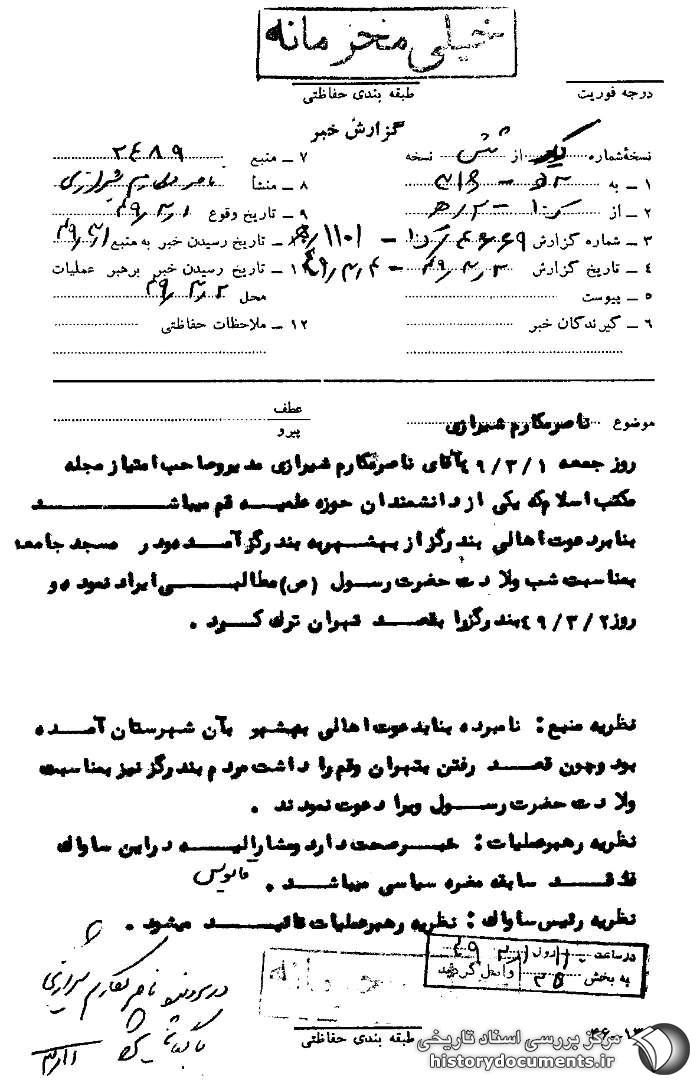 خیلی محرمانه
طبقه بندی حفاظتی
درجه فوریت
گزارش خبر
نسخهٔ شماره یک از شش نسخه
۱ ــ به
۲ ــ از
۳ ــ شماره گزارش
۴ ــ تاریخ گزارش ۴۹٫۳٫۳ ــ ۴۹٫۳٫۴
۵ ــ پیوست
۶ ــ گیرندگان خبر
۷ ــ منبع ۲۴۸۹
۸ ــ منشأ ناصر مکارم شیرازی
۹ ــ تاریخ وقوع ۴۹٫۳٫۱
۱۰ ــ تاریخ رسیدن خبر به منبع ۴۹٫۳٫۱
۱۱ ــ تاریخ رسیدن خبر برهبر عملیات
محل ۴۹٫۳٫۲
۱۲ ــ ملاحظات حفاظتی
موضوع ناصر مکارم شیرازی
عطف
پیرو
روز جمعه ۴۹/۳/۱ آقای ناصر مکارم شیرازی مدیر و صاحب امتیاز مجله
مکتب اسلام که یکی از دانشمندان حوزه علمیه قم میباشد
بنا بر دعوت اهالی بندر گز از بهشهر به بندر گز آمده و در مسجد جامعه
بمناسبت شب ولادت حضرت رسول (ص) مطالبی ایراد نموده و
روز ۴۹/۳/۲ بندر گز را بقصد تهران ترک کرد .
نظریه منبع : نامبرده بنا بدعوت اهالی بهشهر بآن شهرستان آمده
بود و چون قصد رفتن بتهران و قم را داشت مردم بندر گز نیز بمناسبت
ولادت حضرت رسول ویرا دعوت نمودند .
نظریه رهبر عملیات : خبر صحت دارد و مشارالیه در این ساواک
فاقد سابقه مضره سیاسی میباشد . قابوس
نظریه رئیس ساواک : نظریه رهبر عملیات تائید میشود .
در ساعت روز
به بخش واصل گردید
خیلی محرمانه
طبقه بندی حفاظتی
در پرونده ناصر مکارم شیرازی
بایگانی
مرکز بررسی اسناد تاریخی
historydocuments.ir